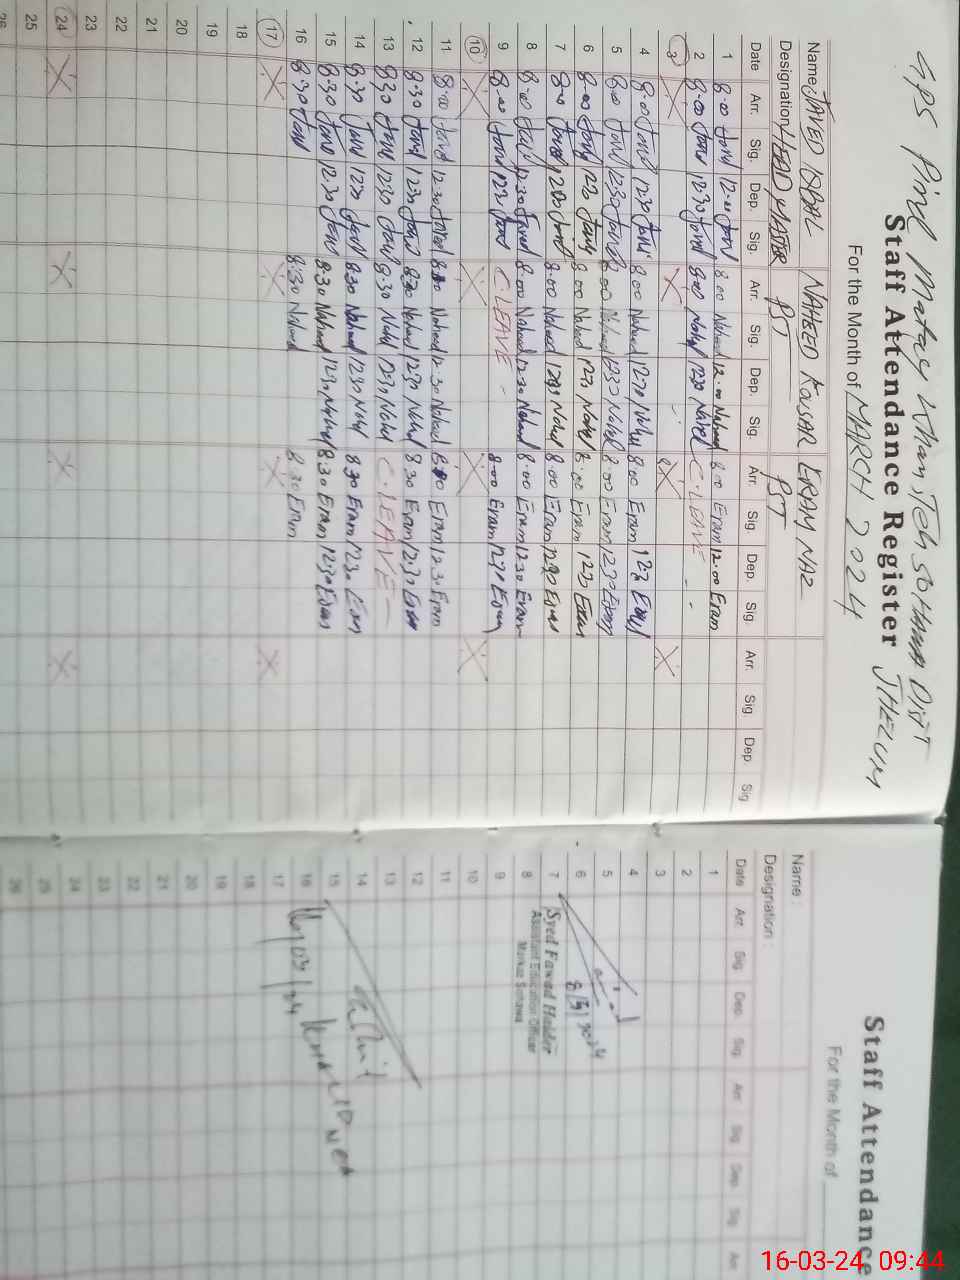 GPS Pind Matay Khan, Teh Sohawa Distt JHELUM
Staff Attendance Register
For the Month of MARCH 2024
Name: JAVED IQBAL NAHEED KOUSAR ERAM NAZ
Designation: HEAD MASTER PST PST
Date Arr. Sig. Dep. Sig. Arr. Sig. Dep. Sig. Arr. Sig. Dep. Sig. Arr. Sig. Dep. Sig
1 8:00 Javed 12:00 Javed 8:00 Naheed 12:00 Naheed 8:00 Eram 12:00 Eram
2 8:00 Javed 12:30 Javed 8:00 Naheed 12:30 Naheed C-LEAVE
3
4 8:00 Javed 12:30 Javed 8:00 Naheed 12:30 Naheed 8:00 Eram 12:30 Eram
5 8:00 Javed 12:30 Javed 8:00 Naheed 12:30 Naheed 8:00 Eram 12:30 Eram
6 8:00 Javed 12:30 Javed 8:00 Naheed 12:30 Naheed 8:00 Eram 12:30 Eram
7 8:00 Javed 12:30 Javed 8:00 Naheed 12:30 Naheed 8:00 Eram 12:30 Eram
8 8:00 Javed 12:30 Javed 8:00 Naheed 12:30 Naheed 8:00 Eram 12:30 Eram
9 8:00 Javed 12:30 Javed C-LEAVE 8:00 Eram 12:30 Eram
10
11 8:00 Javed 12:30 Javed 8:30 Naheed 12:30 Naheed 8:30 Eram 12:30 Eram
12 8:30 Javed 12:30 Javed 8:30 Naheed 12:30 Naheed 8:30 Eram 12:30 Eram
13 8:30 Javed 12:30 Javed 8:30 Naheed 12:30 Naheed C-LEAVE
14 8:30 Javed 12:30 Javed 8:30 Naheed 12:30 Naheed 8:30 Eram 12:30 Eram
15 8:30 Javed 12:30 Javed 8:30 Naheed 12:30 Naheed 8:30 Eram 12:30 Eram
16 8:30 Javed 8:30 Naheed 8:30 Eram
17
18
19
20
21
22
23
24
25
26
Staff Attendance
For the Month of
Name :
Designation :
Date Arr. Sig. Dep. Sig. Arr. Sig. Dep. Sig. Arr
1
2
3
4
5
6
7
8
9
10
11
12
13
14
15
16
17
18
19
20
21
22
23
24
25
26
8/3/2024
Syed Fawad Haider
Assistant Education Officer
Markaz Sohawa
16-03-24 09:44